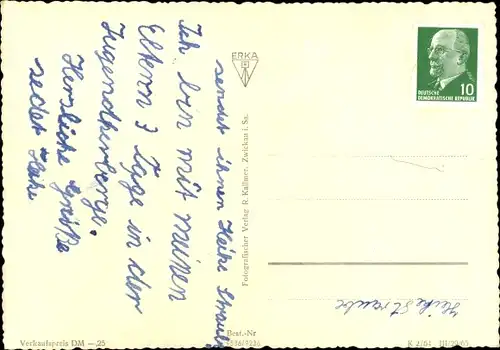 sendet ihnen Heike Straube
Ich bin mit meinen
Eltern 3 Tage in der
Jugendherberge.
Herzliche Grüße
sedet Heike
ERKA
Fotografischer Verlag R. Kallmer, Zwickau i. Sa.
10
DEUTSCHE
DEMOKRATISCHE REPUBLIK
Heike Straube
Verkaufspreis DM —,25
Best.-Nr
K 2/64 III/29/65